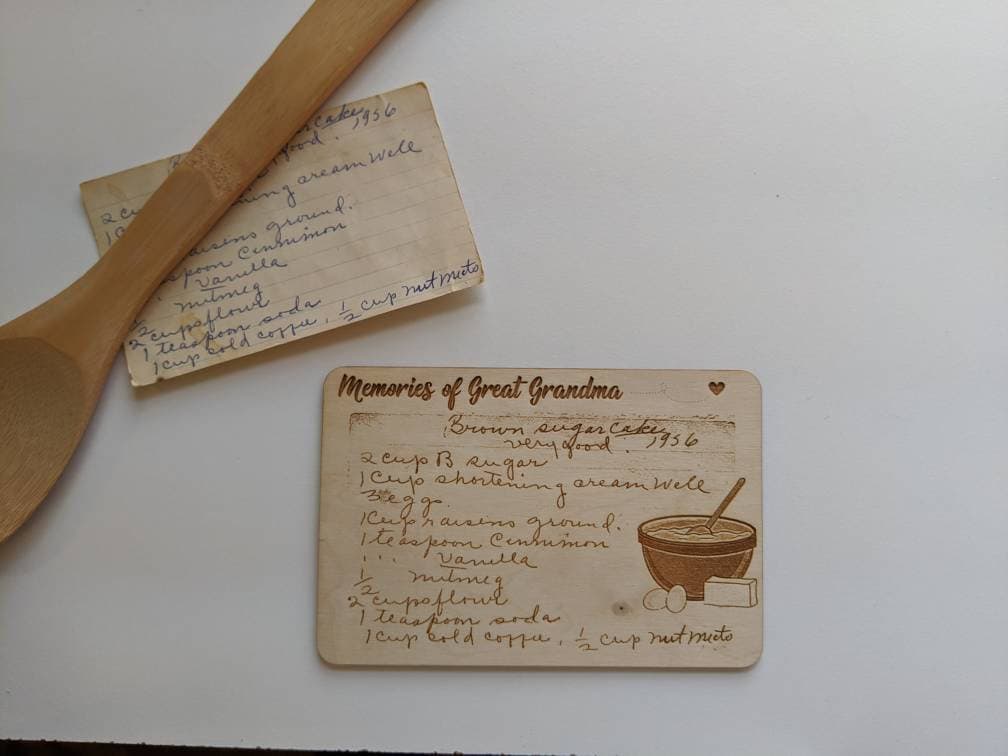 cake
good. 1956
2 cu
ning cream Well
1 C
aisins ground.
spoon Cinnimon
Vanilla
nutmeg
2 cups flour
1 teaspoon soda
1 cup cold coffee, 1/2 cup nut meats
Memories of Great Grandma
Brown sugar cake
very good. 1956
2 cup B sugar
1 Cup shortening cream Well
3 eggs
1 Cup raisins ground.
1 teaspoon Cinnimon
1 " " Vanilla
1/2 nutmeg
2 cups flour
1 teaspoon soda
1 cup cold coffee, 1/2 cup nut meats